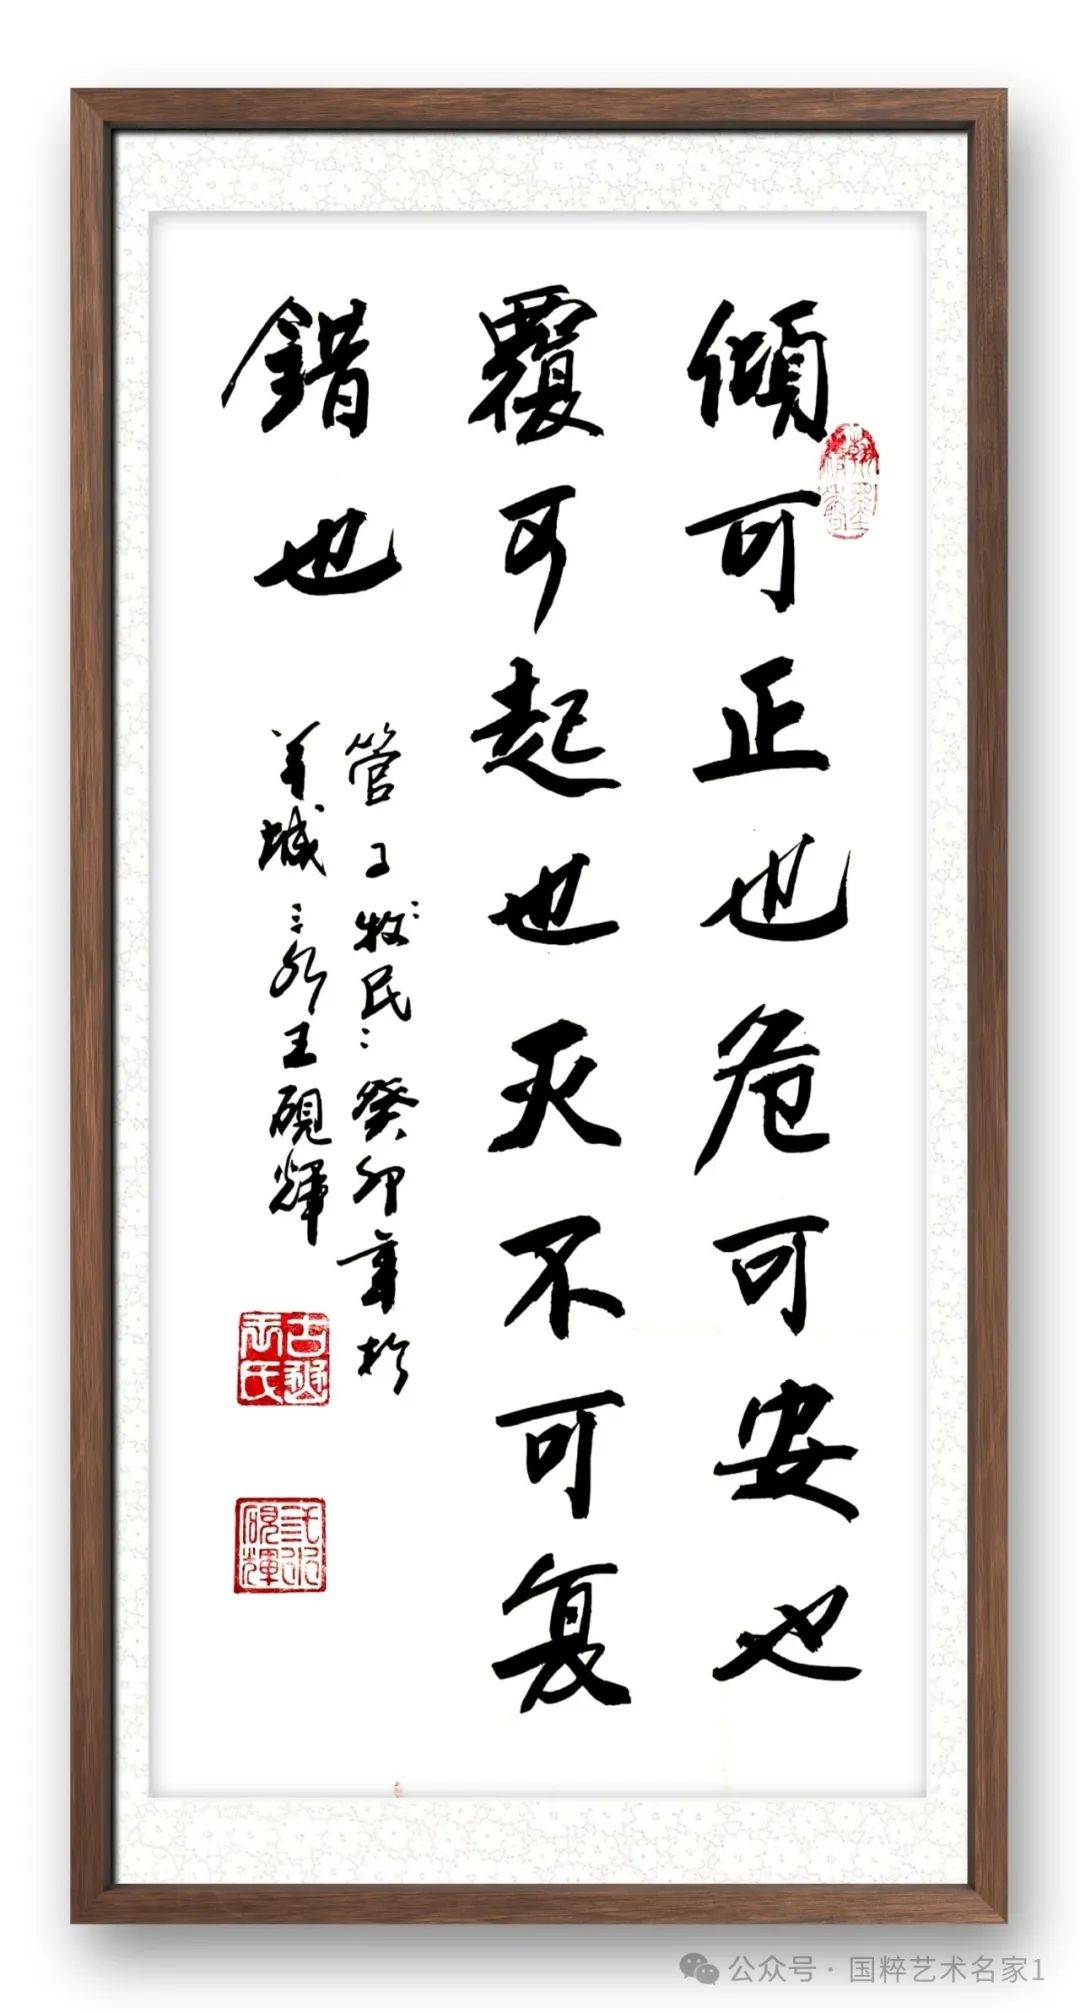 傾可正也危可安也
覆可起也灭不可复
錯也
管子牧民癸卯年於
羊城王硯輝
公众号·国粹艺术名家1